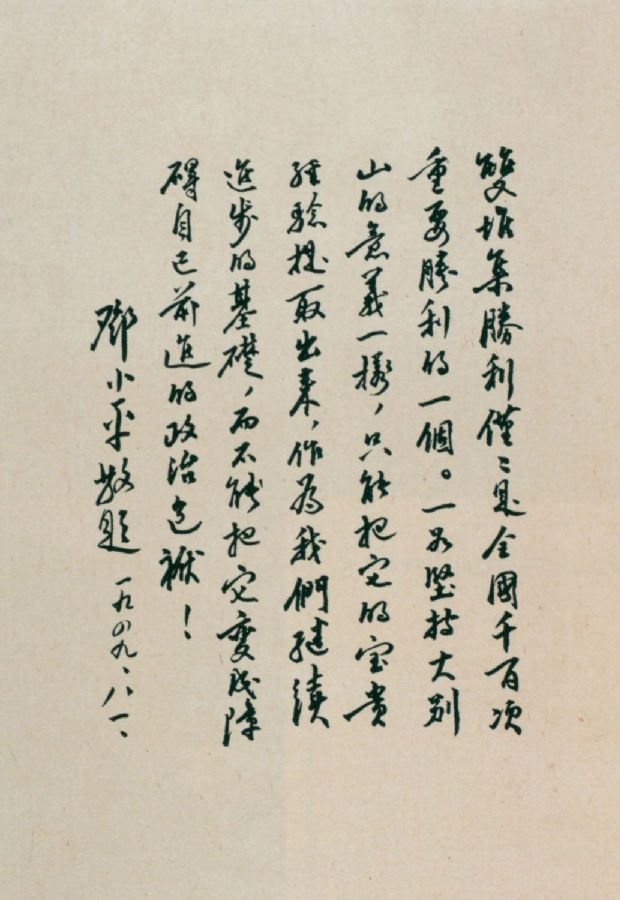 雙堆集勝利僅々是全國千百次
重要勝利的一個。一如堅持大別
山的意義一樣，只能把它的宝貴
經驗提取出來，作為我們继續
進步的基礎，而不能把它变成障
碍自己前進的政治包袱！
鄧小平敬題 一九四九、八、一、